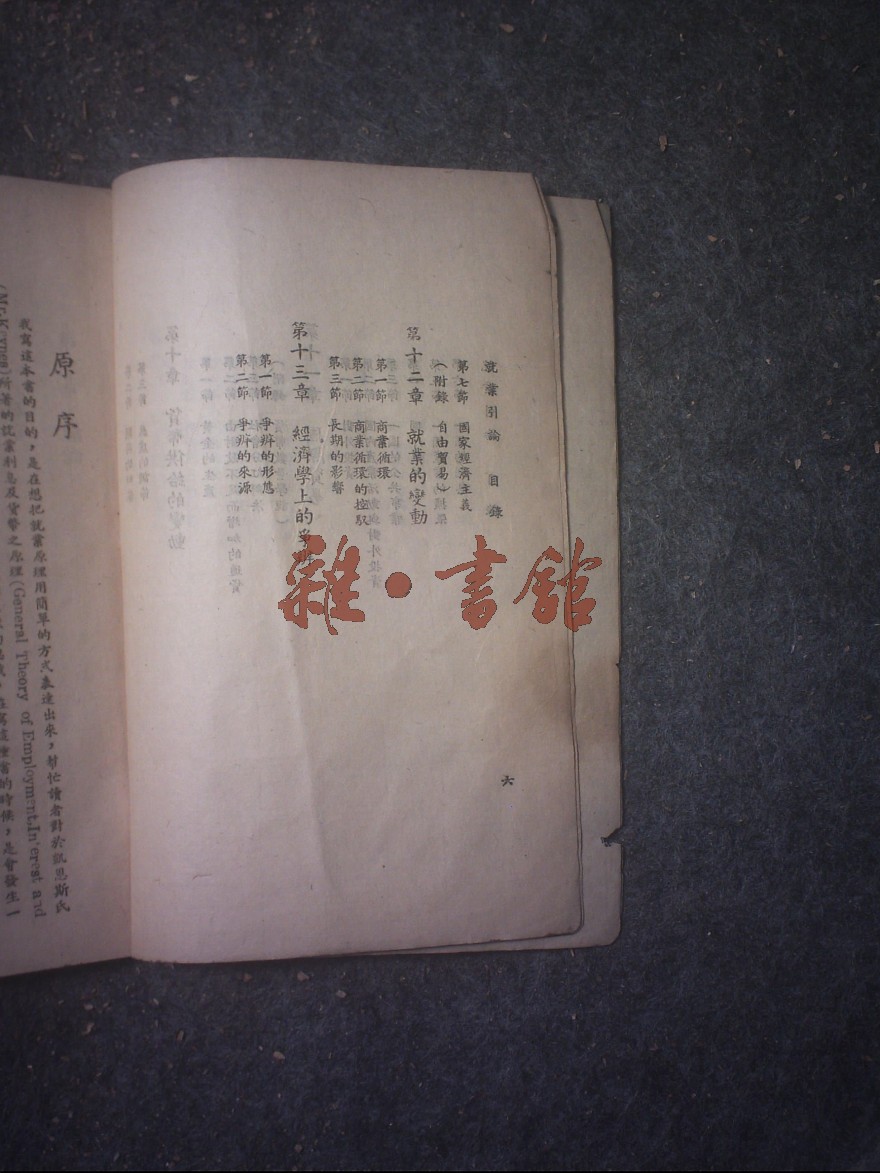 就業引論 目錄
第七節 國家經濟主義
(附錄 自由貿易)
第十二章 就業的變動
第一節 商業循環
第二節 商業循環的控馭
第三節 長期的影響
第十三章 經濟學上的爭
第一節 爭辨的形態
第二節 爭辨的來源
六
雜•書館
原序
我寫這本書的目的,是在想把就業原理用簡單的方式表達出來,幫忙讀者對於凱恩斯氏
所著的就業利息及貨幣之原理(General Theory of Employment.In'erest and
在寫這種書的時候,是會發生一